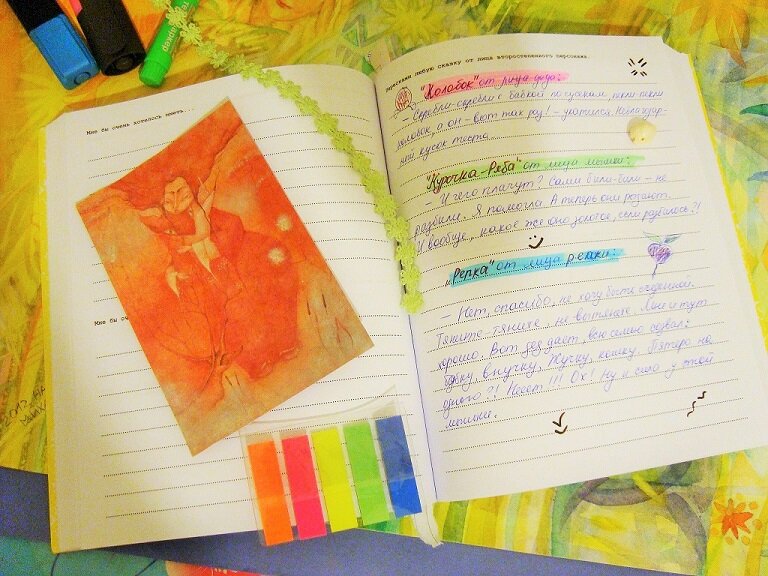 Мне бы очень хотелось иметь...
Мне бы
Перескажи любую сказку от лица второстепенного персонажа.
"Колобок" от лица деда:
– Скребли-скребли с бабкой по сусекам, пекли-пекли
колобок, а он – вот так раз! – укатился. Неблагодар-
ный кусок теста.
"Курочка-Ряба" от лица мышки:
– И чего плачут? Сами били-били – не
разбили. Я помогла. А теперь они рогают.
И вообще, какое же оно золотое, если разбилось?!
"Репка" от лица репки:
– Нет, спасибо, не хочу быть съеденной.
Тяните-тяните, не вытяните. Мне и тут
хорошо. Вот дед дает, всю семью созвал:
бабку, внучку, Жучку, кошку. Пятеро на
одного?! Несет!!! Ох! Ну и сила у этой
мышки.
2013